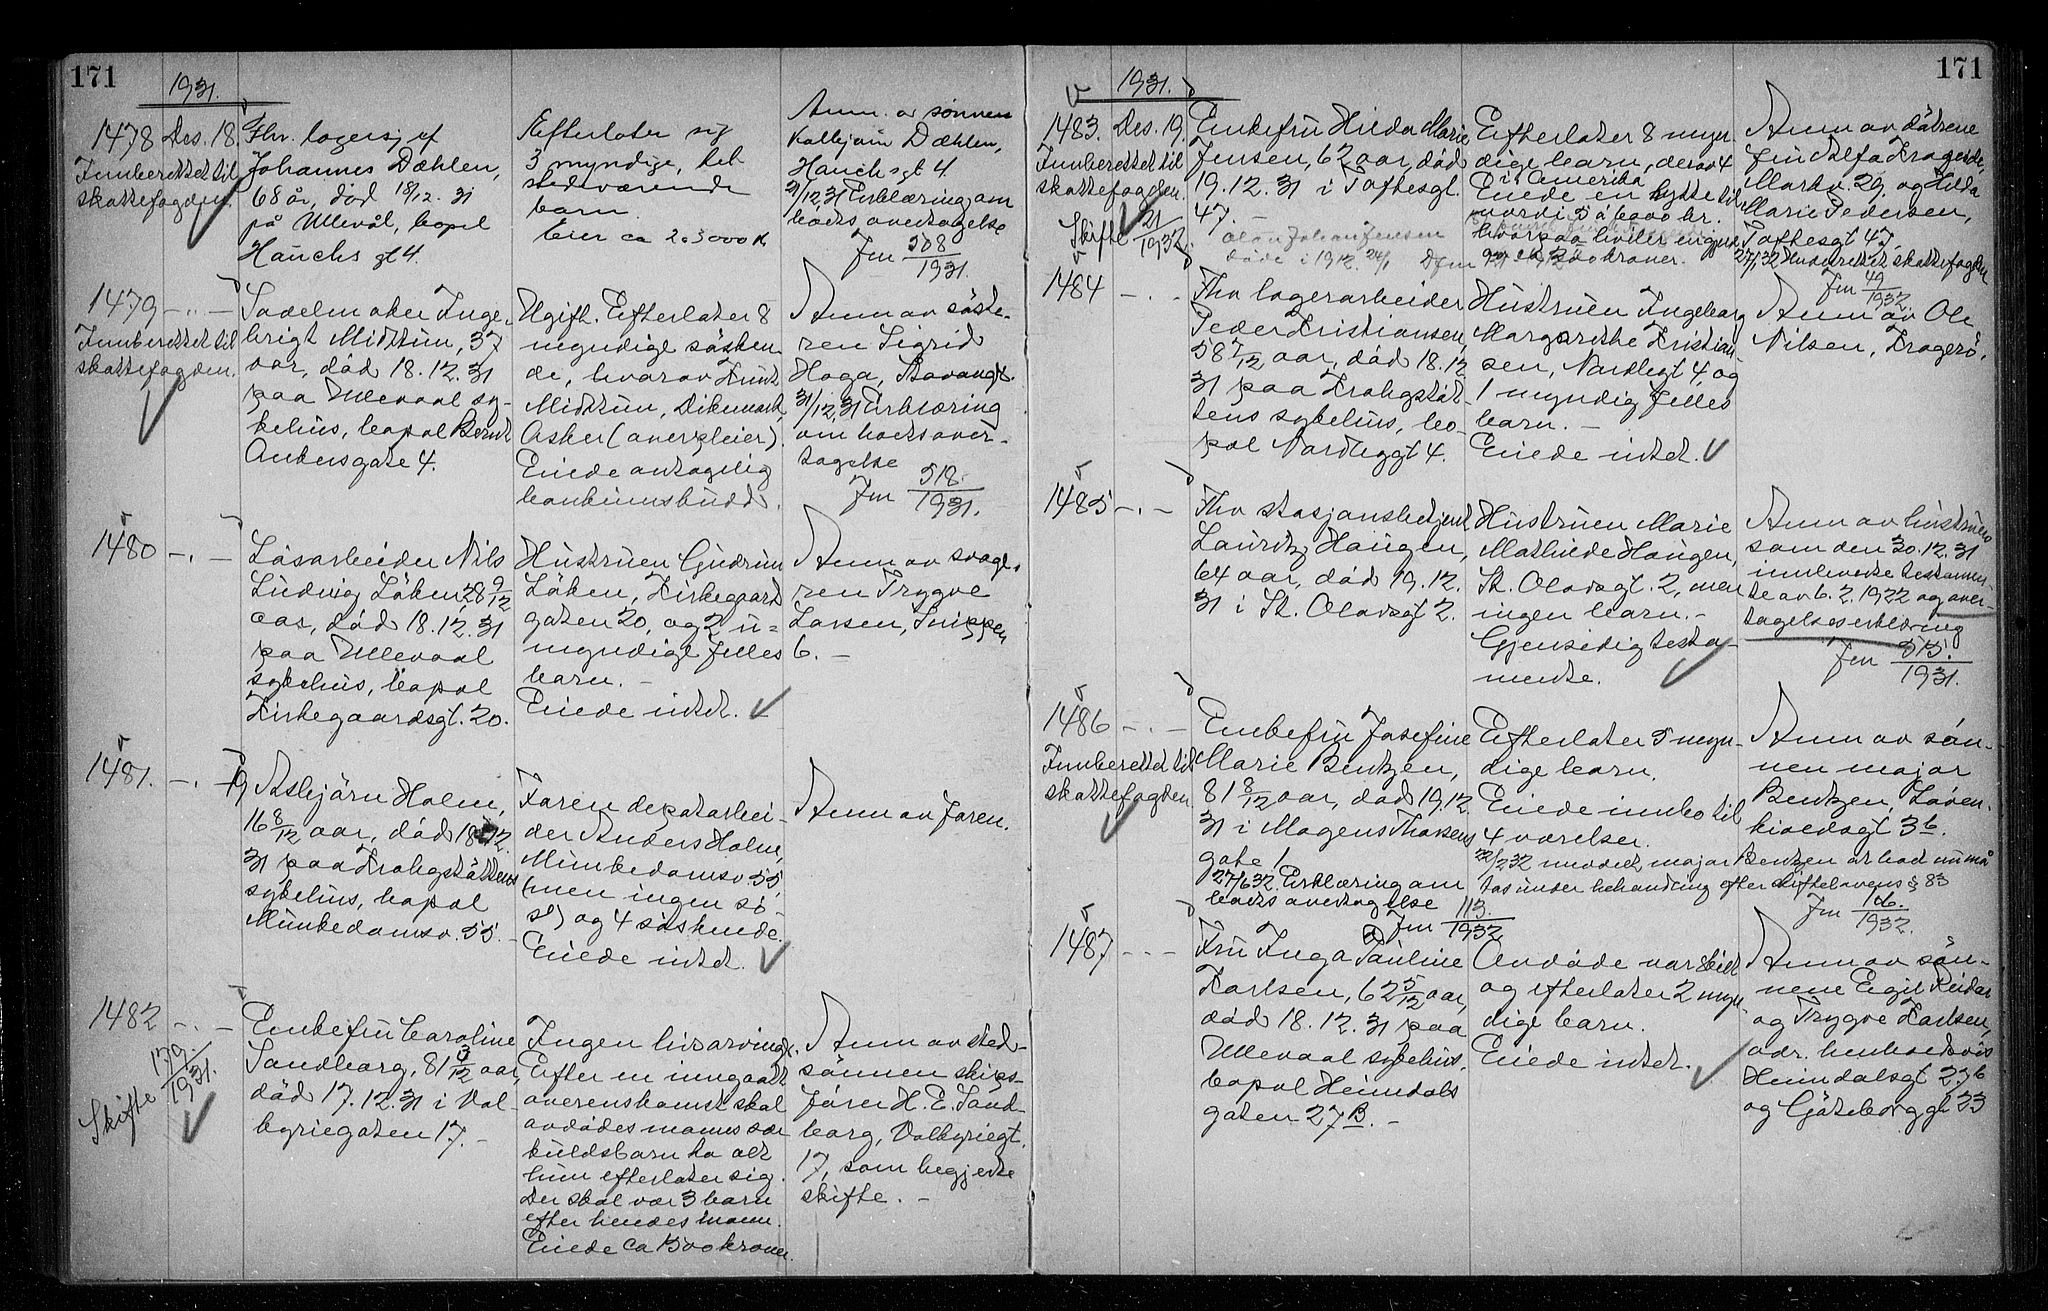 171
1931.
1478 Des. 18.
Innberettet til
skattefogden.
Fhv. lagersj ef
Johannes Dæhlen,
68 år, død 18/12. 31
på Ullevål, bopel
Hauchs gt 4.
Efterlater sig
3 myndige, tel
stedværende
barn.
Eier ca 2à3000 K
Anm. av sønnen
Dæhlen,
Hauchsgt 4
31/12.31 Erklæring om
boets overtagelse
Jnr 508/1931.
1479 - " -
Innberettet til
skattefogden.
Sadelmaker Inge-
brigt Midttun, 37
aar, død 18.12.31
paa Ullevaal sy-
kehus, bopel Bernt
Ankersgate 4.
Ugift. Efterlater 8
myndige søsken-
de, hvorav Knut
Midttun, Dikemark,
Asker (overpleier).
Eiede antagelig
bankinnskudd.
Anm av søste-
ren Sigrid
Haga, Stavangt.
31/12.31 Erklæring
om boets over-
tagelse
Jnr 518/1931.
1480 - " -
Løsarbeider Nils
Ludvig Løken, 28 9/12
aar, død 18.12.31
paa Ullevaal
sykehus, bopel
Kirkegaardsgt. 20.
Hustruen Gudrun
Løken, Kirkegaard
gaten 20, og 2 u=
myndige felles
barn. -
Eiede intet.
Anm av svoge-
ren Trygve
Larsen, Snippen
6. -
1481. - " -
Asbjørn Holm,
16 8/12 aar, død 18.12.
31 paa Krohgstøttens
sykehus, bopel
Munkedamsv. 55.
Faren depotarbei-
der Anders Holm,
Munkedamsv 55,
(men ingen sø-
st) og 4 søskende.
Eiede intet.
Anm av faren.
1482 - " -
Skifte 179./1931.
Enkefru Caroline
Sandborg, 81 3/12 aar,
død 17.12.31 i Val-
kyriegaten 17. -
Ingen livsarvinge.
Efter en inngaatt
overenskomst skal
avdødes manns sær
kuldsbarn ha alt
hun efterlater sig.
Der skal vær 3 barn
efter hendes mann.
Eiede ca 1500 kroner.
Anm av sted-
sønnen skips-
fører H. E. Sand-
borg, Valkyriegt.
17, som begjerte
skifte. -
171
1931.
1483. Des. 19.
Innberettet til
skattefogden.
Skifte 21/1932.
Enkefru Hilda Marie
Jensen, 62 aar, død
19.12.31 i Toftesgt.
47. -
Johan Jensen
døde i 1912. 24/1
Efterlater 8 myn-
dige barn, derav 4
i Amerika
Eiede en hytte til
verdi 5 à 6000 kr.
hvorpaa hviler engjeld
kroner.
Anm av døtrene
Fru Alfa Kragerde,
Markv. 29, og Hilda
Marie Pedersen,
Toftesgt 47.
27/1.32 Underrettet skattefogden
Jnr 49/1932
1484 - " -
Fhv lagerarbeider
Peder Kristiansen,
58 7/12 aar, død 18.12
31 paa Krohgstøt-
tens sykehus, bo-
pel Nordlygt 4.
Hustruen Ingeborg
Margrethe Kristian-
sen, Nordlygt 4, og
1 myndig felles
barn. -
Eiede intet.
Anm av Ole
Nilsen, Kragerø.
1485 - " -
Fhv stasjonsbetjent
Lauritz Haugen,
64 aar, død 19.12.
31 i St. Olavsgt 2.
Hustruen Marie
Mathilde Haugen,
St. Olavsgt. 2, men
ingen barn. -
Gjensidig testa-
mente.
Anm av hustruen
som den 30.12.31
innleverte testamen-
te av 6.2.1922 og over-
tagelseserklæring
Jnr 515./1931.
1486 - " -
Innberettet til
skattefogden.
Enkefru Josefine
Marie Bentzen,
81 8/12 aar, død 19.12.
31 i Magens Thorsens
gate 1
27/6.32. Erklæring om
boets overtagelse
Jnr 113./1932
Efterlater 5 myn-
dige barn.
Eiede innbo til
4 værelser.
22/2 32 meddelt major Bentzen at boet nu må
tas under behandling efter skiftelovens § 83
Jnr 106./1932.
Anm av søn-
nen major
Bentzen, Løven-
skioldsgt 3b.
1487 - " -
Fru Inga Pauline
Karlsen, 62 5/12 aar,
død 18.12.31 paa
Ullevaal sykehus,
bopel Heimdals
gaten 27B. -
Avdøde var skilt
og efterlater 2 myn-
dige barn.
Eiede intet.
Anm av søn-
nene Eigil Reidar
og Trygve Karlsen,
adr. henholdsvis
Heimdalsgt 27b
og Gøteborggt 23